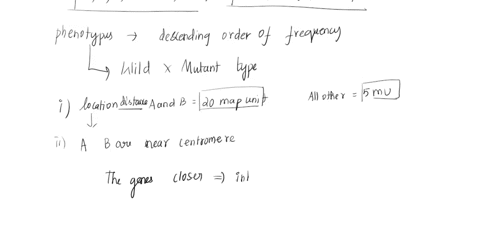 phenotypes → descending order of frequency
↳ Wild x Mutant type
i) location distance A and B = 20 map unit All other = 5 mu
ii) A B are near centromere
The genes closer ⇒ int